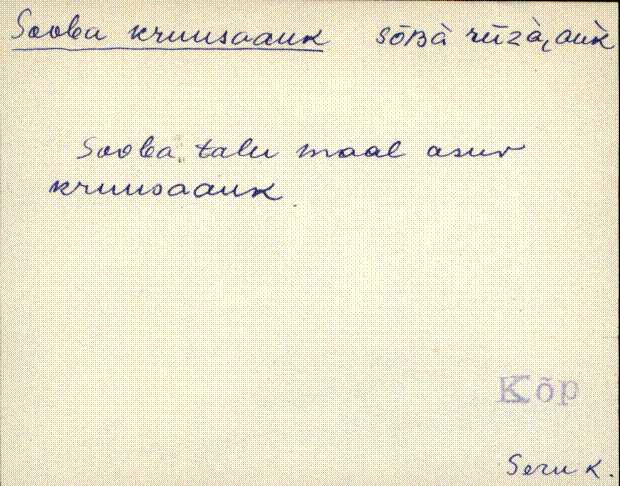 Sooba kruusaauk sōʙà rūzà, au̬k
Sooba talu maal asuv
kruusaauk.
Kõp
Seru k.